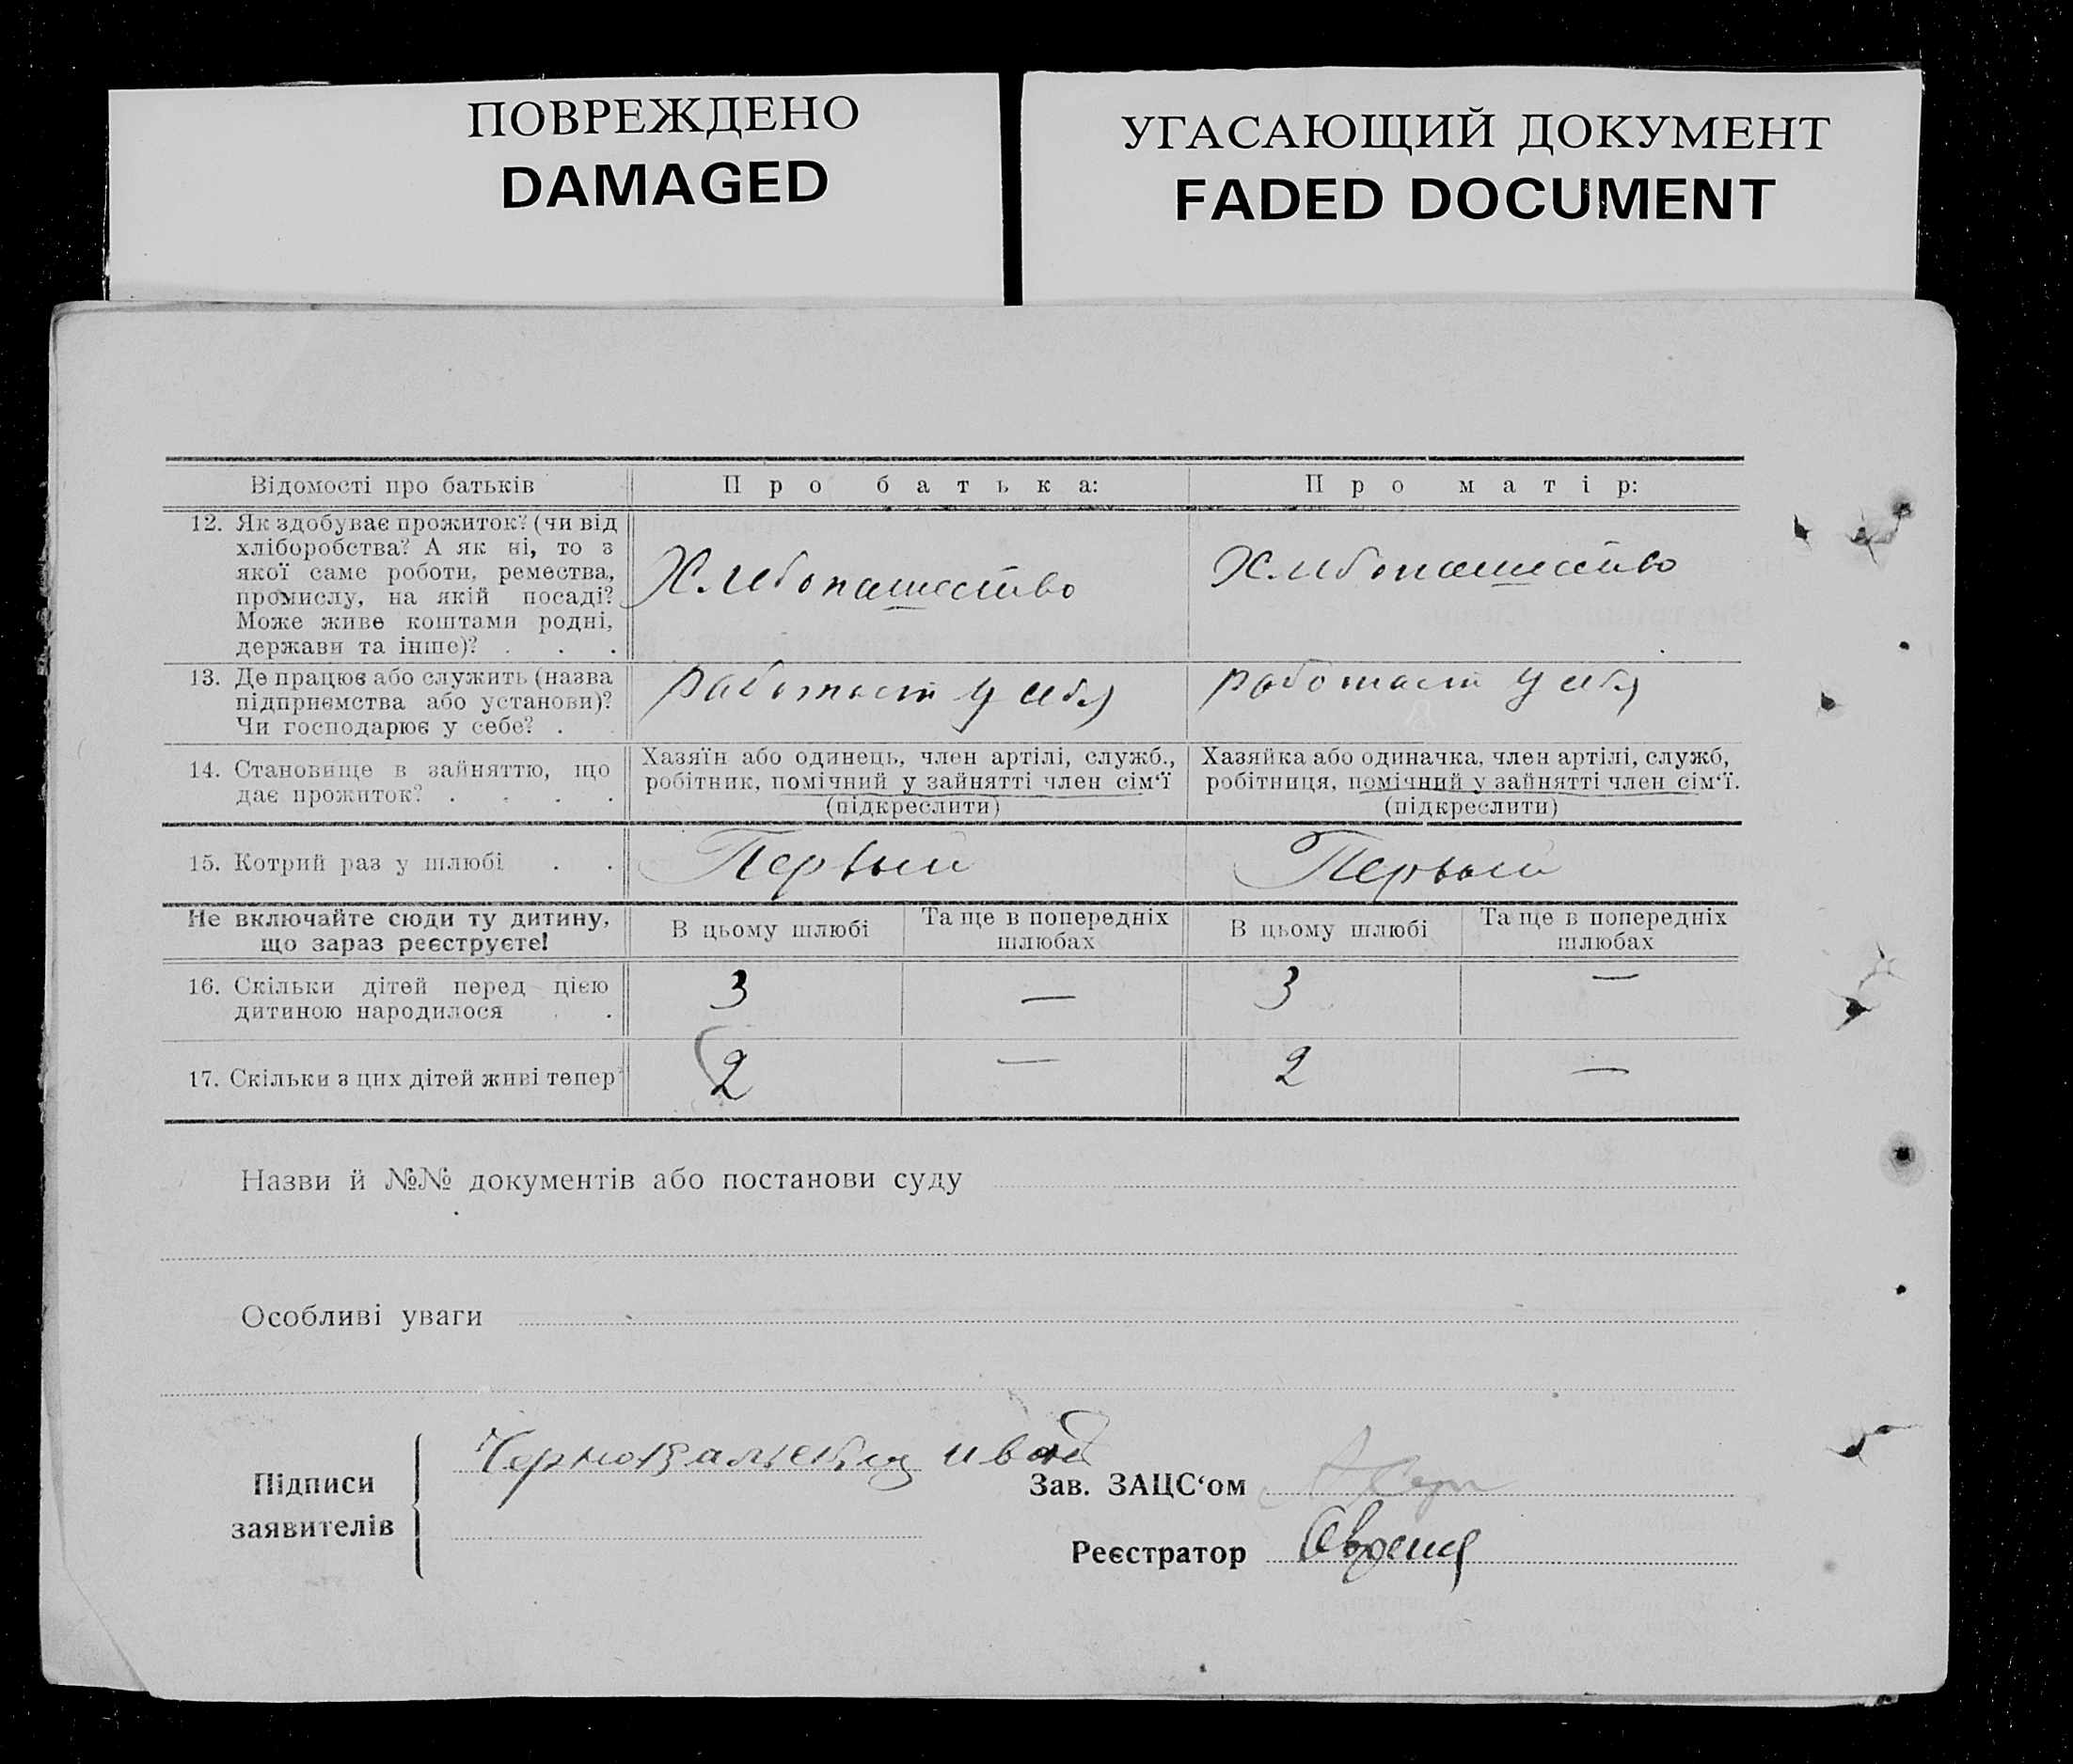 ПОВРЕЖДЕНО
DAMAGED
УГАСАЮЩИЙ ДОКУМЕНТ
FADED DOCUMENT
Відомості про батьків
Про батька:
Про матір:
12. Як здобуває прожиток? (чи від
хліборобства? А як ні, то з
якої саме роботи, ремества,
промислу, на якій посаді?
Може живе коштами родні,
держави та інше)? . . .
Хлебопашество
Хлебопашество
13. Де працює або служить (назва
підприємства або установи)?
Чи господарює у себе? .
работает у себя
работает у себя
14. Становище в зайняттю, що
дає прожиток? . . . .
Хазяїн або одинець, член артілі, служб.,
робітник, помічний у зайнятті член сім‘ї
(підкреслити)
Хазяйка або одиначка, член артілі, служб,
робітниця, помічний у зайнятті член сім‘ї.
(підкреслити)
15. Котрий раз у шлюбі . .
Первый
Первый
Не включайте сюди ту дитину,
що зараз реєструєте!
В цьому шлюбі
Та ще в попередніх
шлюбах
В цьому шлюбі
Та ще в попередніх
шлюбах
16. Скільки дітей перед цією
дитиною народилося . .
3
—
3
—
17. Скільки з цих дітей живі тепер
2
—
2
—
Назви й №№ документів або постанови суду
Особливі уваги
Підписи
заявителів
Зав. ЗАЦС‘ом
Реєстратор